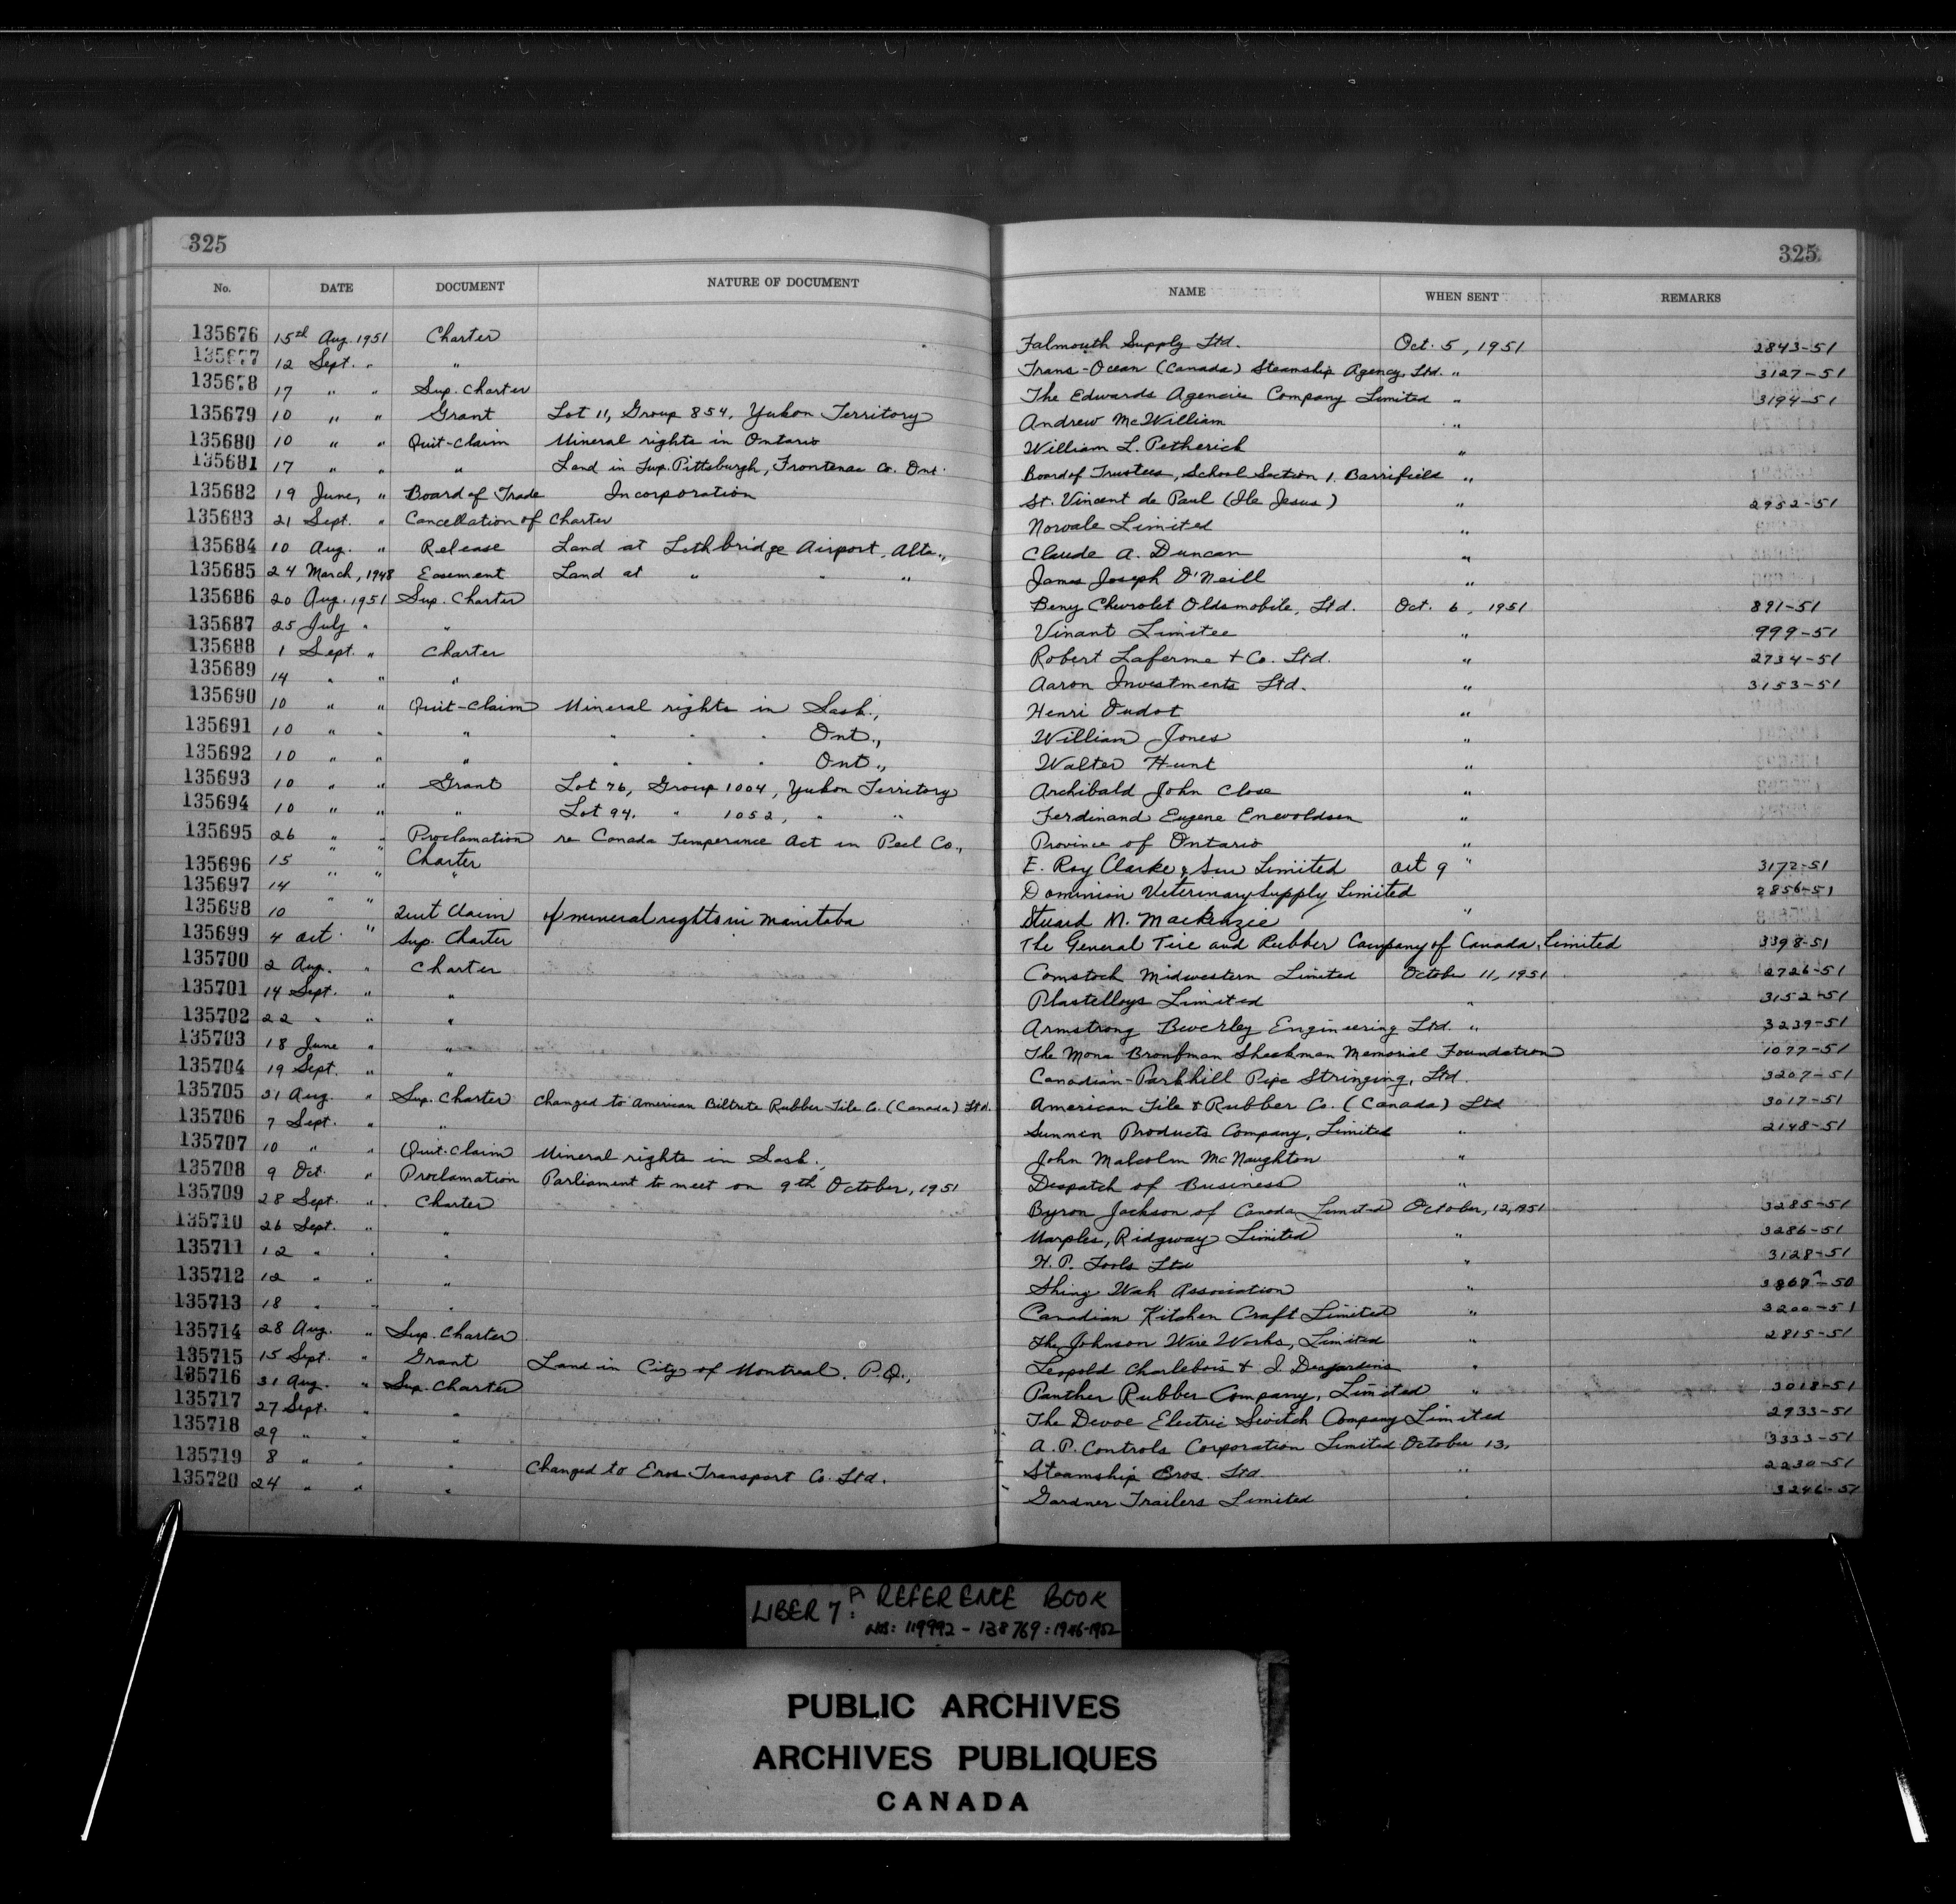 325 325
No. DATE DOCUMENT NATURE OF DOCUMENT NAME WHEN SENT REMARKS
135676 15th Aug. 1951 Charter Falmouth Supply Ltd. Oct. 5, 1951 2843-51
135677 12 Sept. " " Trans-Ocean (Canada) Steamship Agency, Ltd. " 3127-51
135678 17 " " Sup. Charter The Edwards Agencies Company Limited " 3194-51
135679 10 " " Grant Lot 11, Group 854, Yukon Territory Andrew McWilliam "
135680 10 " " Quit-Claim Mineral rights in Ontario William L. Petherick "
135681 17 " " " Land in Twp. Pittsburgh, Frontenac Co. Ont. Board of Trustees, School Section 1, Barriefield "
135682 19 June, " Board of Trade Incorporation St. Vincent de Paul (Ile Jesus) " 2952-51
135683 21 Sept. " Cancellation of Charter Norvale Limited "
135684 10 Aug. " Release Land at Lethbridge Airport, Alta., Claude A. Duncan "
135685 24 March, 1948 Easement Land at " " " James Joseph O'Neill "
135686 20 Aug. 1951 Sup. Charter Beny Chevrolet Oldsmobile, Ltd. Oct. 6, 1951 891-51
135687 25 July " " Vinant Limitee " 999-51
135688 1 Sept. " Charter Robert Laferme & Co. Ltd. " 2734-51
135689 14 " " " Aaron Investments Ltd. " 3153-51
135690 10 " " Quit-Claim Mineral rights in Sask., Henri Oudot "
135691 10 " " " " " " Ont., William Jones "
135692 10 " " " " " " Ont., Walter Hunt "
135693 10 " " Grant Lot 76, Group 1004, Yukon Territory Archibald John Close "
135694 10 " " " Lot 94, " 1052, " " Ferdinand Eugene Enevoldsen "
135695 26 " " Proclamation re Canada Temperance Act in Peel Co., Province of Ontario "
135696 15 " " Charter E. Roy Clarke & Son Limited Oct 9 " 3172-51
135697 14 " " " Dominion Veterinary Supply Limited 2856-51
135698 10 " " Quit Claim of mineral rights in Manitoba Stuard M. Mackenzie "
135699 4 Oct. " Sup. Charter The General Tire and Rubber Company of Canada, Limited 3398-51
135700 2 Aug. " Charter Comstock Midwestern Limited October 11, 1951 2726-51
135701 14 Sept. " " Plastelloys Limited " 3152-51
135702 22 " " " Armstrong Beverley Engineering Ltd. " 3239-51
135703 18 June " " The Mona Bronfman Sheckman Memorial Foundation 1077-51
135704 19 Sept. " " Canadian-Parkhill Pipe Stringing, Ltd. 3207-51
135705 31 Aug. " Sup. Charter Changed to American Biltrite Rubber Tile Co. (Canada) Ltd. American Tile & Rubber Co. (Canada) Ltd 3017-51
135706 7 Sept. " " Sunnen Products Company, Limited " 2148-51
135707 10 " " Quit-Claim Mineral rights in Sask., John Malcolm McNaughton "
135708 9 Oct. " Proclamation Parliament to meet on 9th October, 1951 Despatch of Business "
135709 28 Sept. " Charter Byron Jackson of Canada Limited October, 12, 1951 3285-51
135710 26 Sept. " " Marples, Ridgway Limited " 3286-51
135711 12 " " " H.P. Tools Ltd " 3128-51
135712 12 " " " Shing Wah Association " 3867-50
135713 18 " " " Canadian Kitchen Craft Limited " 3200-51
135714 28 Aug. " Sup. Charter The Johnson Wire Works, Limited " 2815-51
135715 15 Sept. " Grant Land in City of Montreal, P.Q., Leopold Charlebois & J. Desjardins "
135716 31 Aug. " Sup. Charter Panther Rubber Company, Limited " 3018-51
135717 27 Sept. " " The Devoe Electric Switch Company Limited 2933-51
135718 29 " " " A.P. Controls Corporation Limited October 13, 3333-51
135719 8 " " " Changed to Eros Transport Co. Ltd. Steamship Eros. Ltd " 2230-51
135720 24 " " " Gardner Trailers Limited " 3246-51
LIBER 7: A REFERENCE BOOK
NOS: 119992 - 138769: 1946-1952
PUBLIC ARCHIVES
ARCHIVES PUBLIQUES
CANADA